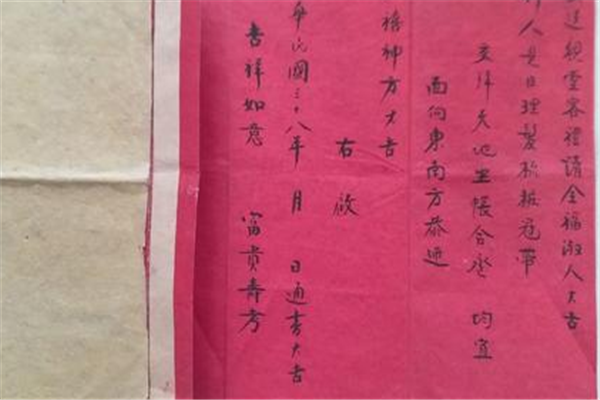 親堂客禮請全福淑人大吉
人是日理髮梳粧冠帶
交拜天地坐帳合巹 均宜
面向東南方恭迎
禧神方大吉
右啟
華民國三十八年 月 日通書大吉
吉祥如意 富貴壽考